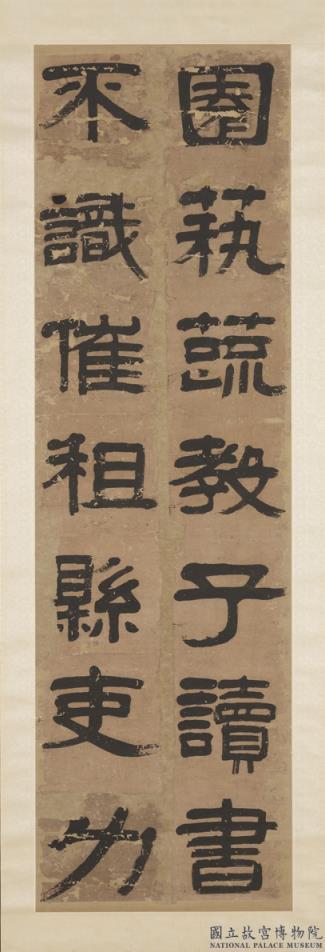 園蓺蔬教子讀書
不識催租縣吏力
國立故宮博物院
NATIONAL PALACE MUSEUM